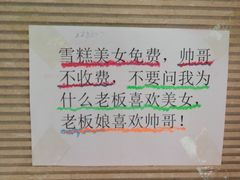 雪糕美女免费，帅哥
不收费，不要问我为
什么老板喜欢美女，
老板娘喜欢帅哥！